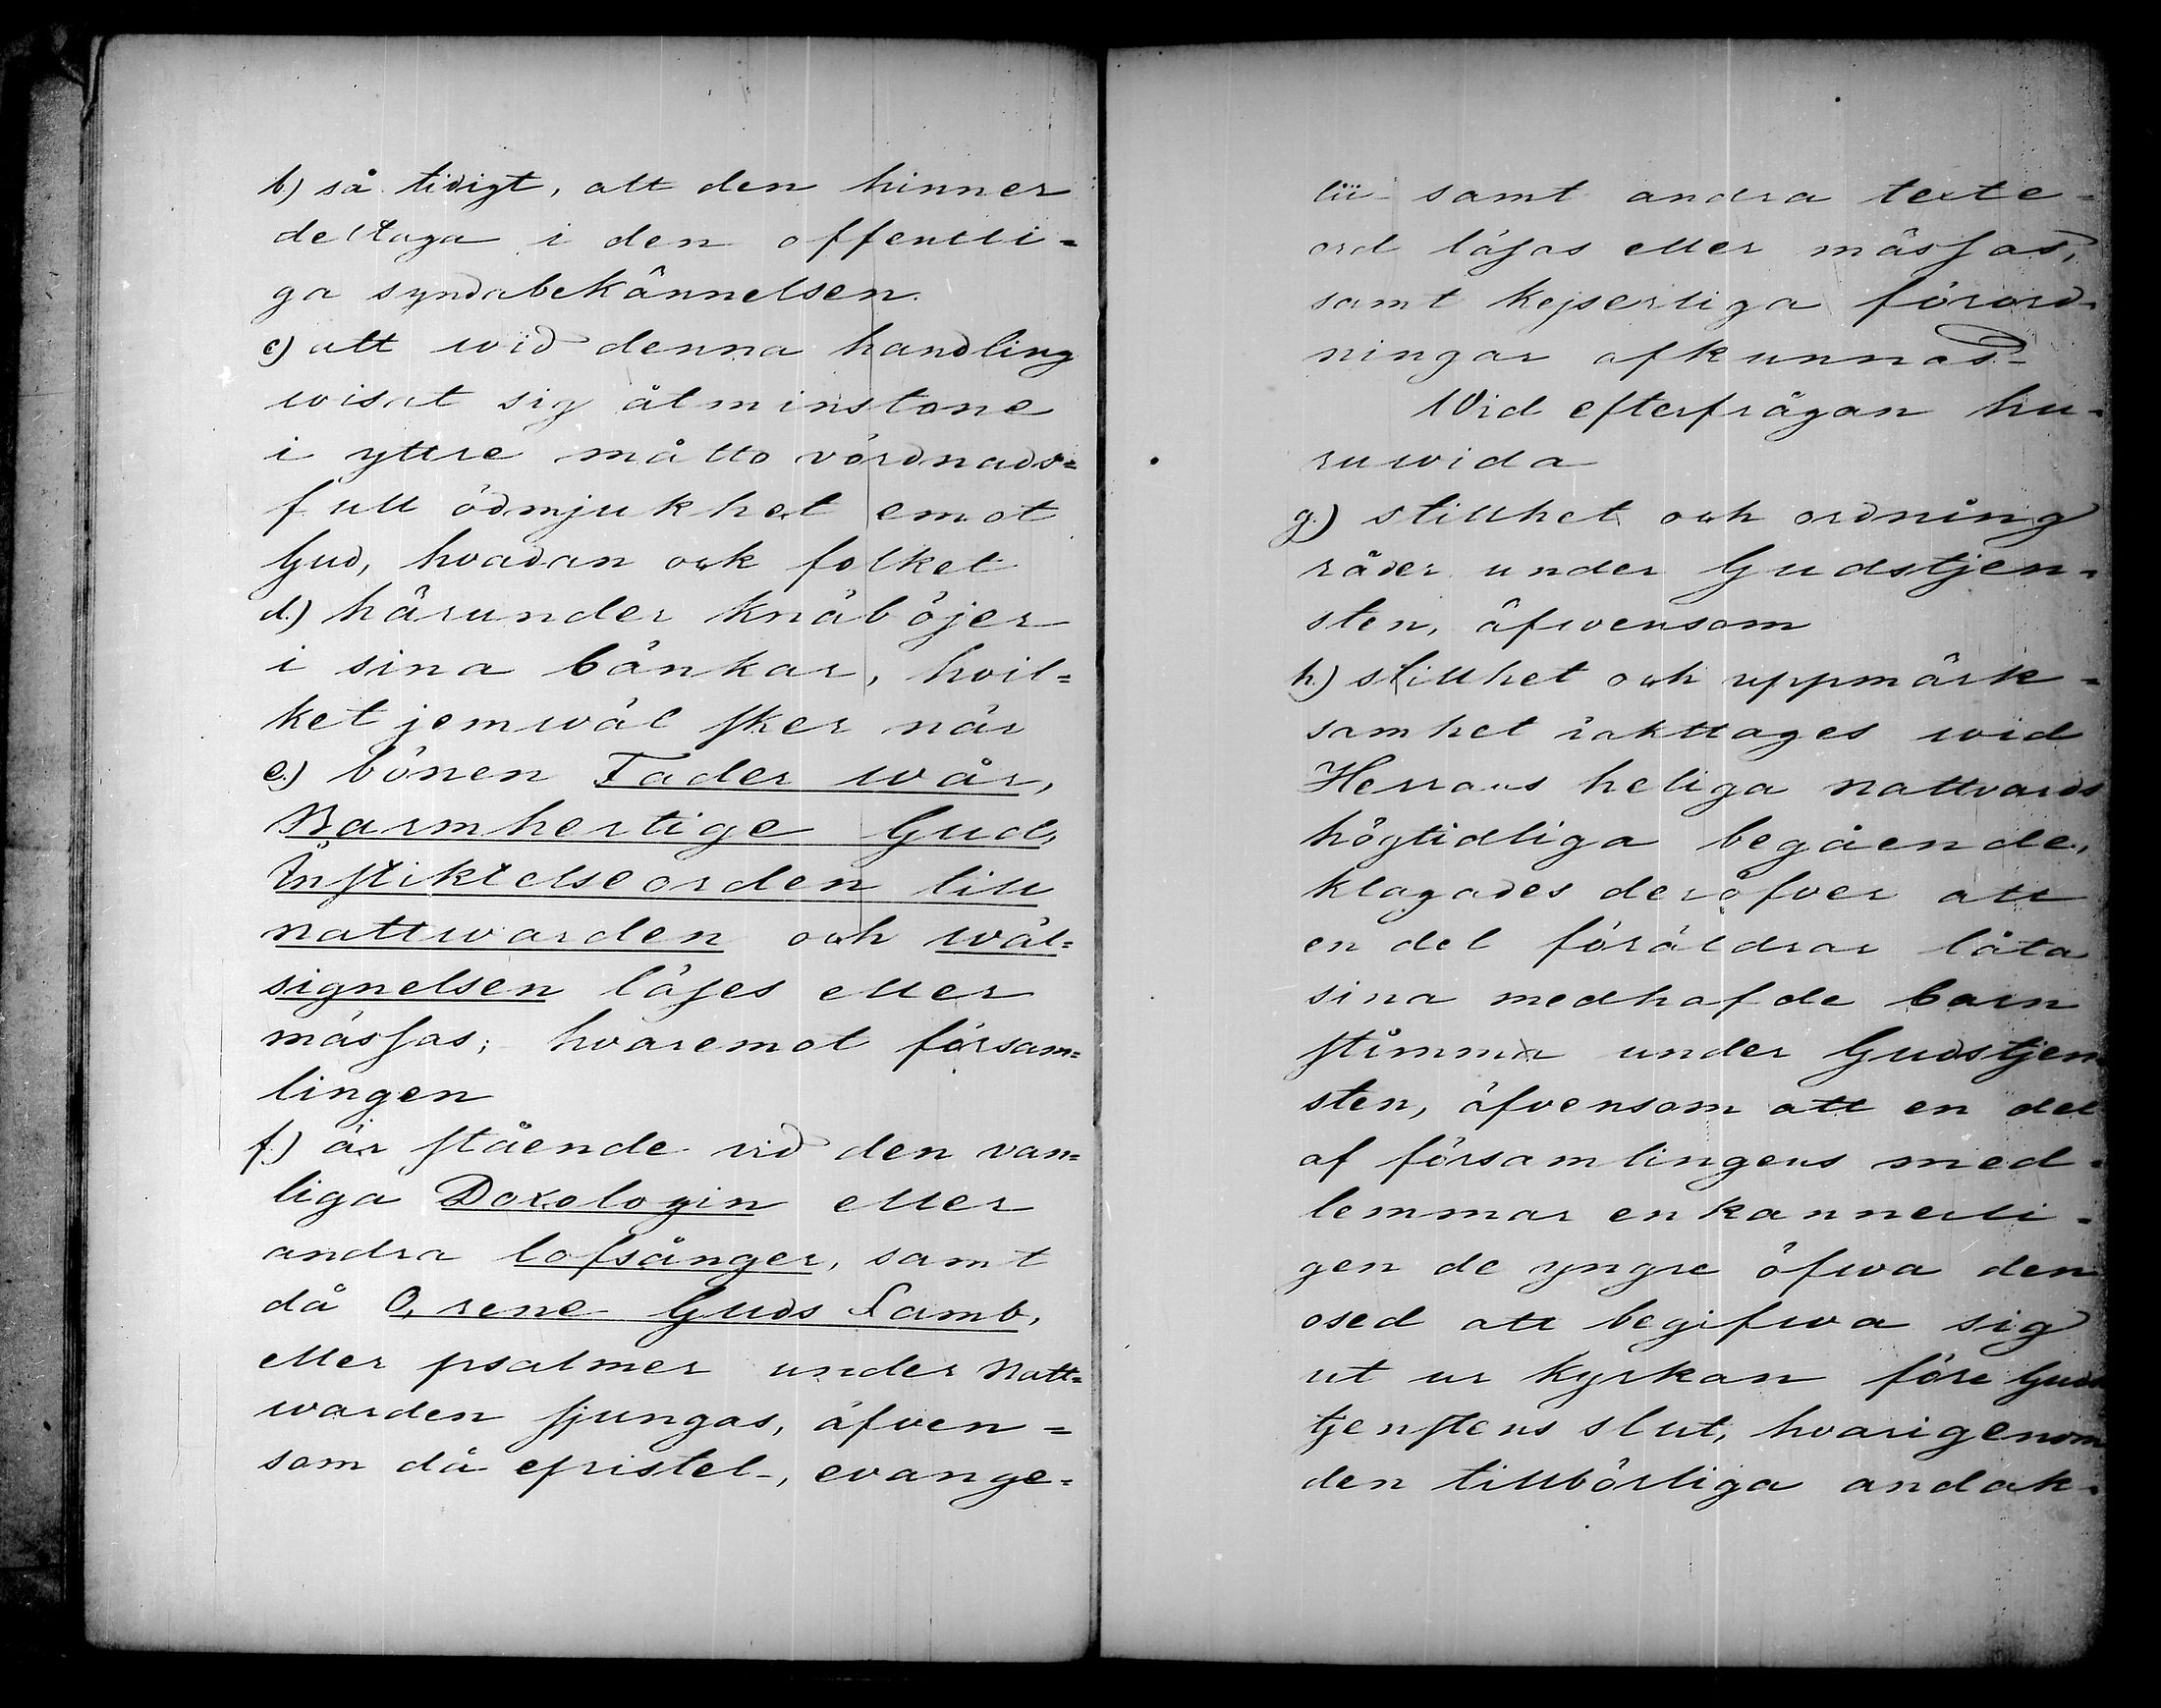 b) så tidigt, att den hinner
deltaga i den offentli=
ga syndabekännelsen.
c) att wid denna handling
wisat sig åtminstone
i yttre måtto vördnads=
full ödmjukhet emot
Gud, hvadan ock folket
d.) härunder knäböjer
i sina bänkar, hvil=
ket jemwäl sker när
e.) bönen Fader wår,
Barmhertige Gud,
Instiktelseorden till
nattwarden och wäl=
signelsen läses eller
mässas; hvaremot försam=
lingen
f.) är stående vid den van=
liga Doxologin eller
andra lofsånger, samt
då O, rene Guds Lamb,
eller psalmer under Natt=
warden sjungas, äfven=
som då epistel-, evange=
lii- samt andra texte-
ord läsas eller mässas,
samt kejserliga förord-
ningar afkunnas-
Wid efterfrågan hu-
ruwida
g.) stillhet och ordning
råder under Gudstjen-
sten, äfwensom
h.) stillhet och uppmärk=
samhet iakttages wid
Herrans heliga nattvards
högtidliga begående,
klagades deröfver att
en del föräldrar låta
sina medhafde barn
stimma under Gudstjen-
sten, äfvensom att en del
af församlingens med-
lemmar enkannerli=
gen de yngre öfwa den
osed att begifwa sig
ut ur kyrkan före Guds
tjenstens slut, hvarigenom
den tillbörliga andak-